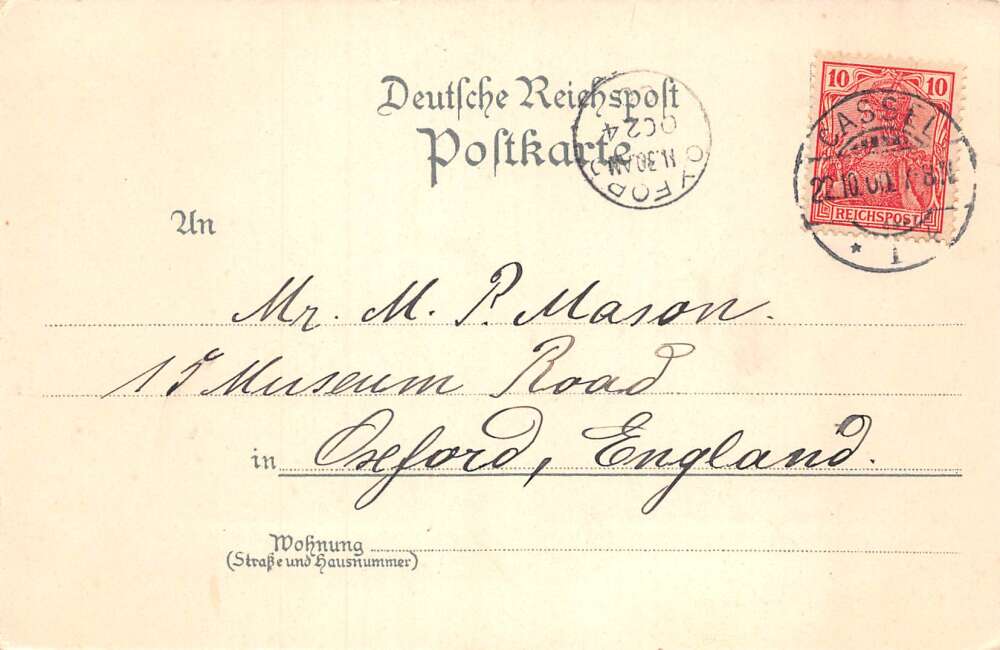 Deutsche Reichspost
Postkarte
10 10
REICHSPOST
CASSEL
22.10.00
* 1
OXFORD
11.30AM
OC24
00
An
Mr. M. P. Mason.
15 Museum Road
in Oxford, England.
Wohnung
(Straße und Hausnummer)